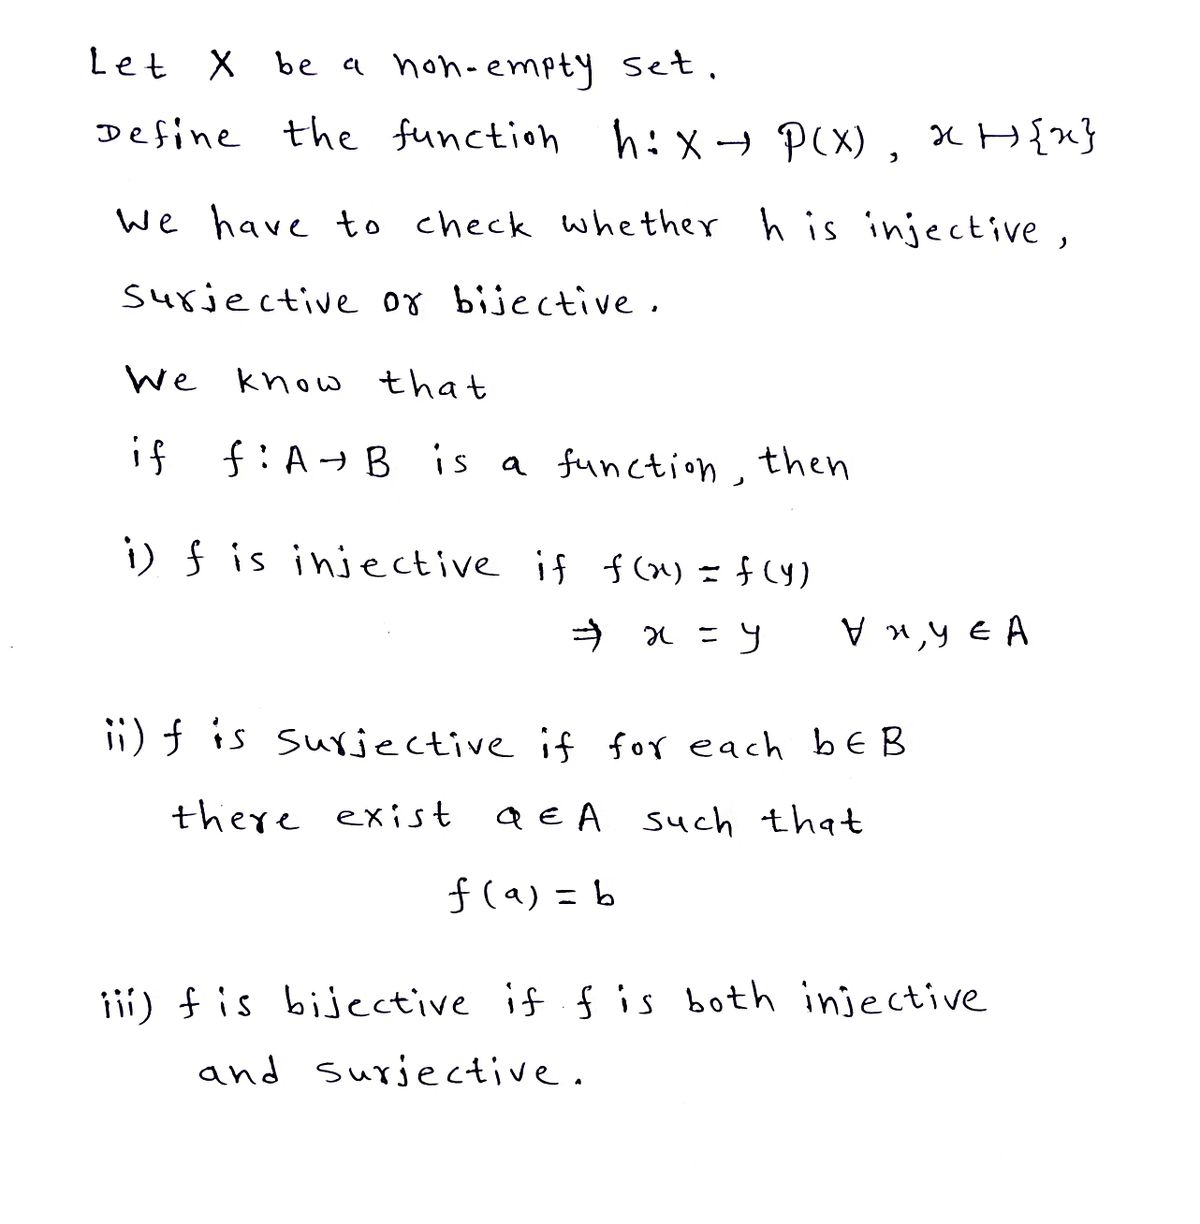 Let X be a non-empty set.
Define the function h: X → P(X), x ↦ {x}
We have to check whether h is injective,
surjective or bijective.
We know that
if f: A → B is a function, then
i) f is injective if f(x) = f(y)
⇒ x = y ∀ x,y ∈ A
ii) f is surjective if for each b ∈ B
there exist a ∈ A such that
f(a) = b
iii) f is bijective if f is both injective
and surjective.